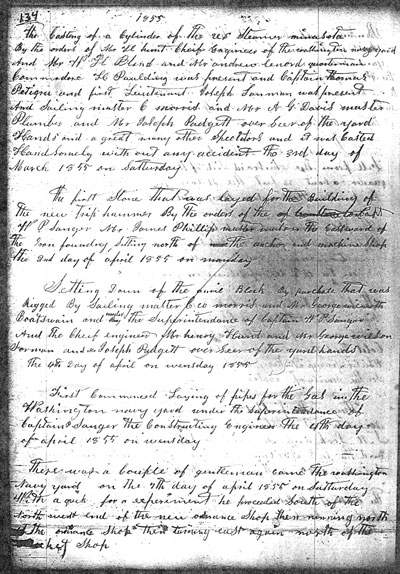 134
1855
The Casting of a Cylinder of the US Steamer minasota
By the orders of Mr H hunt Cheif Engineer of the washington navy yard
And Mr W H Blend and Mr andrew lenord quarterman
Commodore H Paulding was present and Captain thomas
Petigru and first Lieutenant Joseph Lanman was present
And Sailing master C morris and Mr A G Davis master
Plumber and Mr Joseph Padgett over Seer of the yard
Hands and a great many other Spectators and it was Casted
Handsomely with out any accident the 3rd day of
March 1855 on Saturday
The first Stone that was layed for the Building of
the new Trip hammer By the orders of the of Capt
W P Sanger Mr James Phillip master mason the Eastward of
the Iron foundry, sitting north of the anchor and machine Shop
the 2nd day of april 1855 on monday
Setting Down of the anvil Block By purchase that was
Rigged By Sailing master C co morris and Mr George
Boatswain and under the Superintendance of Captain W P Sanger
And the Cheif engineer Mr henry Hunt and Mr George wilson
Forman and Joseph Padgett over Seer of the yard hands
the 4th Day of april on wensday 1855
First Commenced Laying of pipes for the Gas in the
Washington navy yard under the Superintendance of
Captain Sanger the Constructing Engineer the 4th day
of april 1855 on wensday
There was a Couple of gentleman came the washington
Navy yard on the 7th day of april 1855 on Satturday
With a for a experiment he proceeded South of the
north west end of the new ordnance Shop then running north
of the ordnance Shop then turning east again north of the
Shop